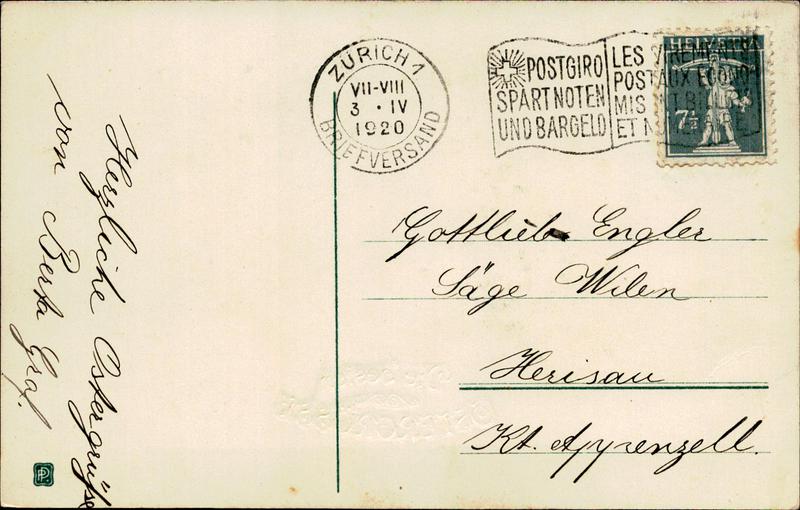 Herzliche Ostergrüße
von Berta Graf.
ZÜRICH 1
VII-VIII
3 · IV
1920
BRIEFVERSAND
POSTGIRO
SPART NOTEN
UND BARGELD
LES
POSTAUX ECONO-
MIS
ET
HELVETIA
7½
Gottlieb Engler
Säge Wilen
Herisau
Kt. Appenzell.